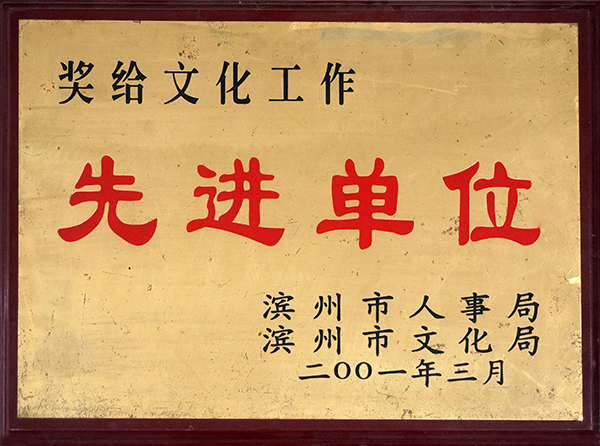 奖给文化工作
先进单位
滨州市人事局
滨州市文化局
二〇〇一年三月